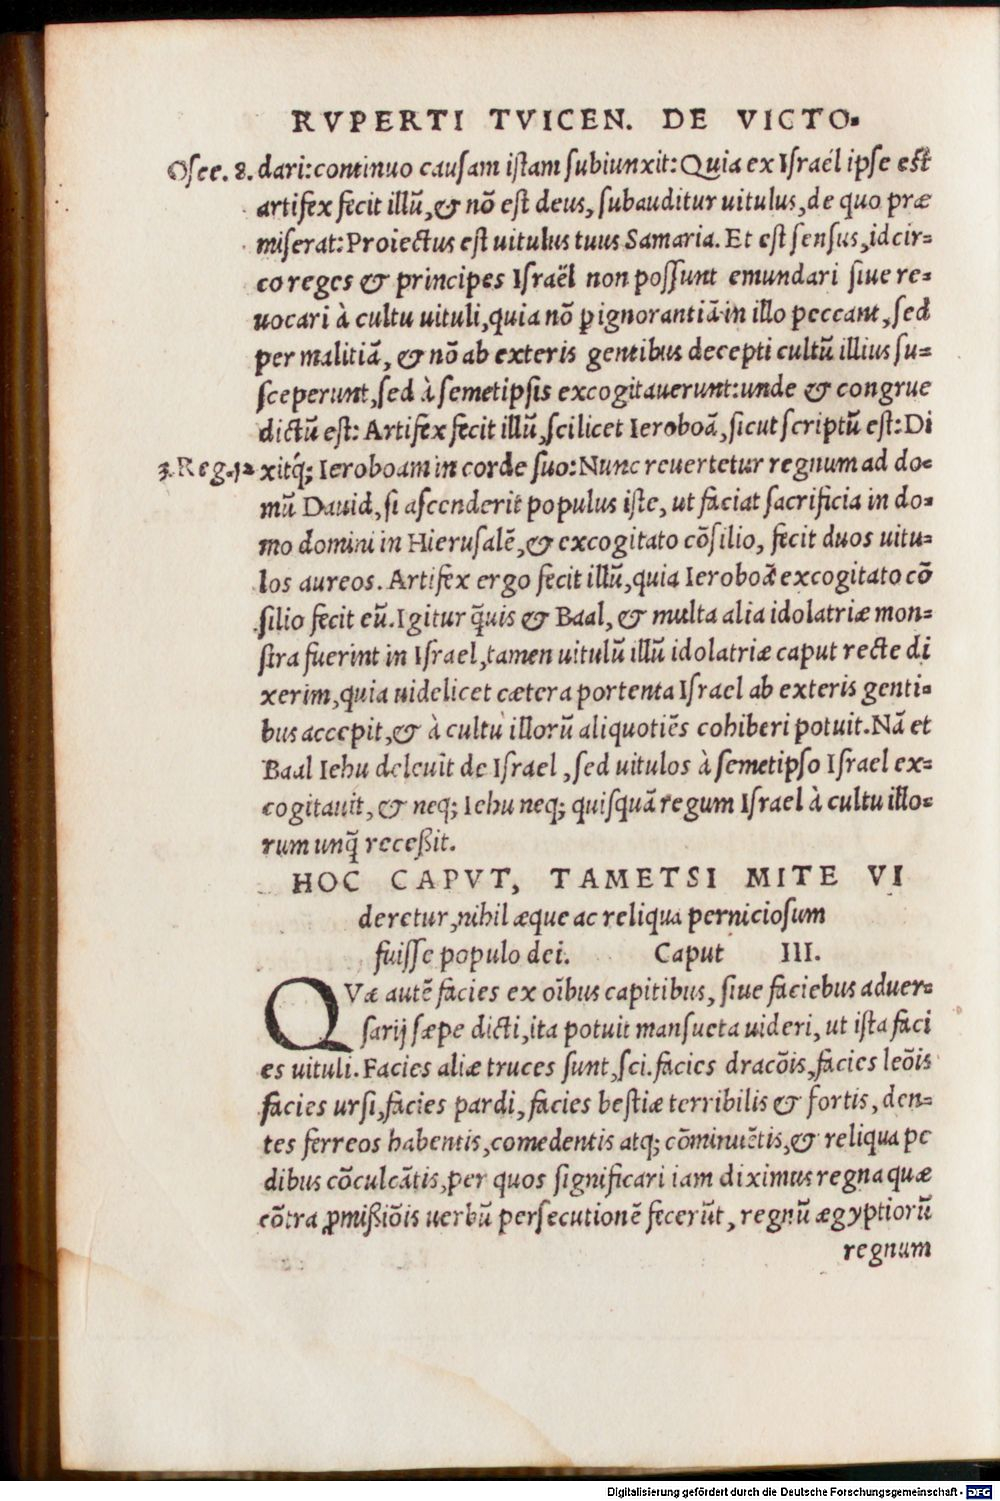 RVPERTI TVICEN. DE VICTO-
Osee. 8. dari: continuo causam istam subiunxit: Quia ex Israël ipse est
artifex fecit illũ, & nõ est deus, subauditur uitulus, de quo præ
miserat: Proiectus est uitulus tuus Samaria. Et est sensus, idcir=
co reges & principes Israël non possunt emundari siue re=
uocari à cultu uituli, quia nõ ꝑ ignorantiã in illo peccant, sed
per malitiã, & nõ ab exteris gentibus decepti cultũ illius su=
sceperunt, sed à semetipsis excogitauerunt: unde & congrue
dictũ est: Artifex fecit illũ, scilicet Ieroboã, sicut scriptũ est: Di
3. Reg. 12 xitq́; Ieroboam in corde suo: Nunc reuertetur regnum ad do=
mũ Dauid, si ascenderit populus iste, ut faciat sacrificia in do=
mo domini in Hierusalẽ, & excogitato cõsilio, fecit duos uitu=
los aureos. Artifex ergo fecit illũ, quia Ieroboã excogitato cõ
silio fecit eũ. Igitur q̃uis & Baal, & multa alia idolatriæ mon=
stra fuerint in Israel, tamen uitulũ illũ idolatriæ caput recte di
xerim, quia uidelicet cætera portenta Israel ab exteris genti=
bus accepit, & à cultu illorũ aliquotiẽs cohiberi potuit. Nã et
Baal Iehu deleuit de Israel, sed uitulos à semetipso Israel ex=
cogitauit, & neq; Iehu neq; quisquã regum Israel à cultu illo=
rum unq̃ receßit.
HOC CAPVT, TAMETSI MITE VI
deretur, nihil æque ac reliqua perniciosum
fuisse populo dei. Caput III.
QVæ autẽ facies ex oĩbus capitibus, siue faciebus aduer=
sarij sæpe dicti, ita potuit mansueta uideri, ut ista faci
es uituli. Facies aliæ truces sunt, sci. facies dracõis, facies leõis
facies ursi, facies pardi, facies bestiæ terribilis & fortis, den=
tes ferreos habentis, comedentis atq; cõminuẽtis, & reliqua pe
dibus cõculcãtis, per quos significari iam diximus regna quæ
cõtra ꝓmißiõis uerbũ persecutionẽ fecerũt, regnũ ægyptiorũ
regnum
Digitalisierung gefördert durch die Deutsche Forschungsgemeinschaft - DFG